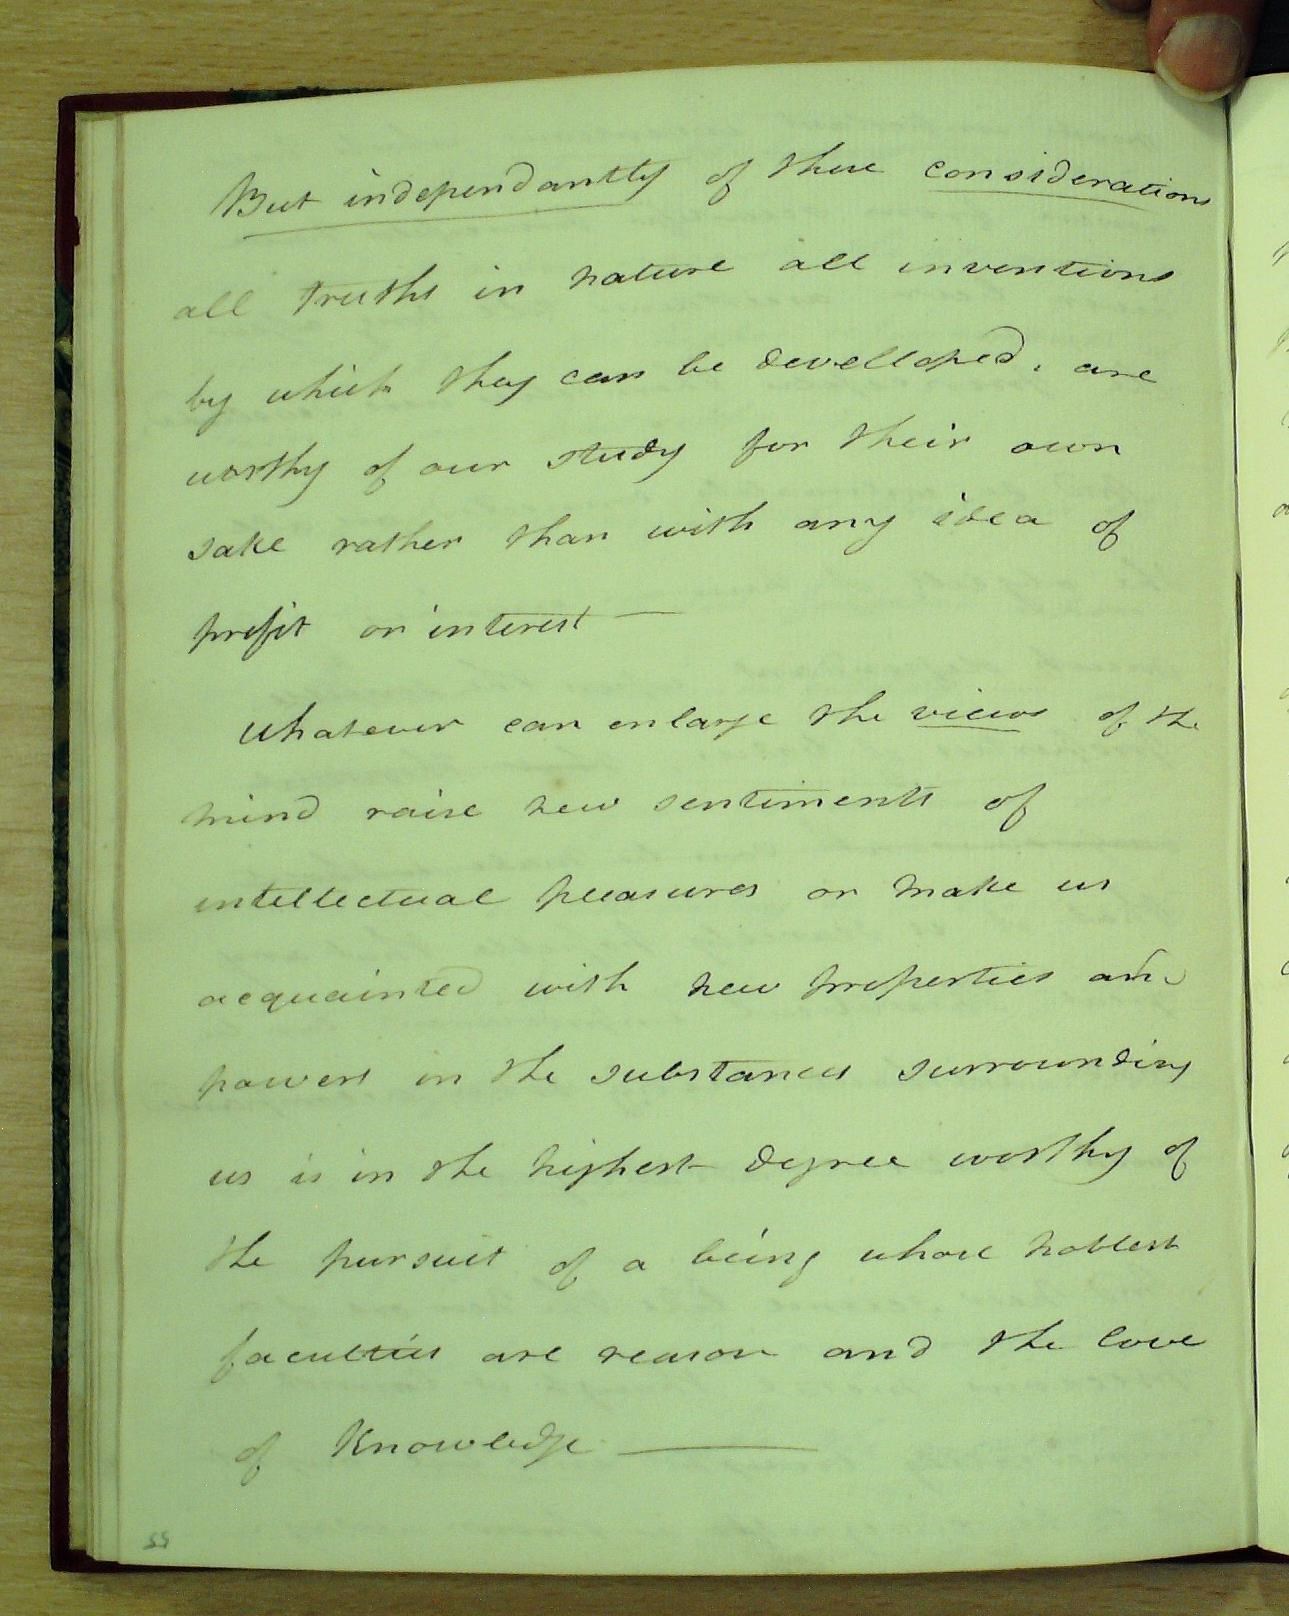 But independantly of these considerations
all truths in nature all inventions
by which they can be developed, are
worthy of our study for their own
sake rather than with any idea of
profit or interest —
Whatever can enlarge the views of the
mind raise new sentiments of
intellectual pleasures or make us
acquainted with new properties and
powers in the substances surrounding
us is in the highest degree worthy of
the pursuit of a being whose noblest
faculties are reason and the love
of Knowledge —
55